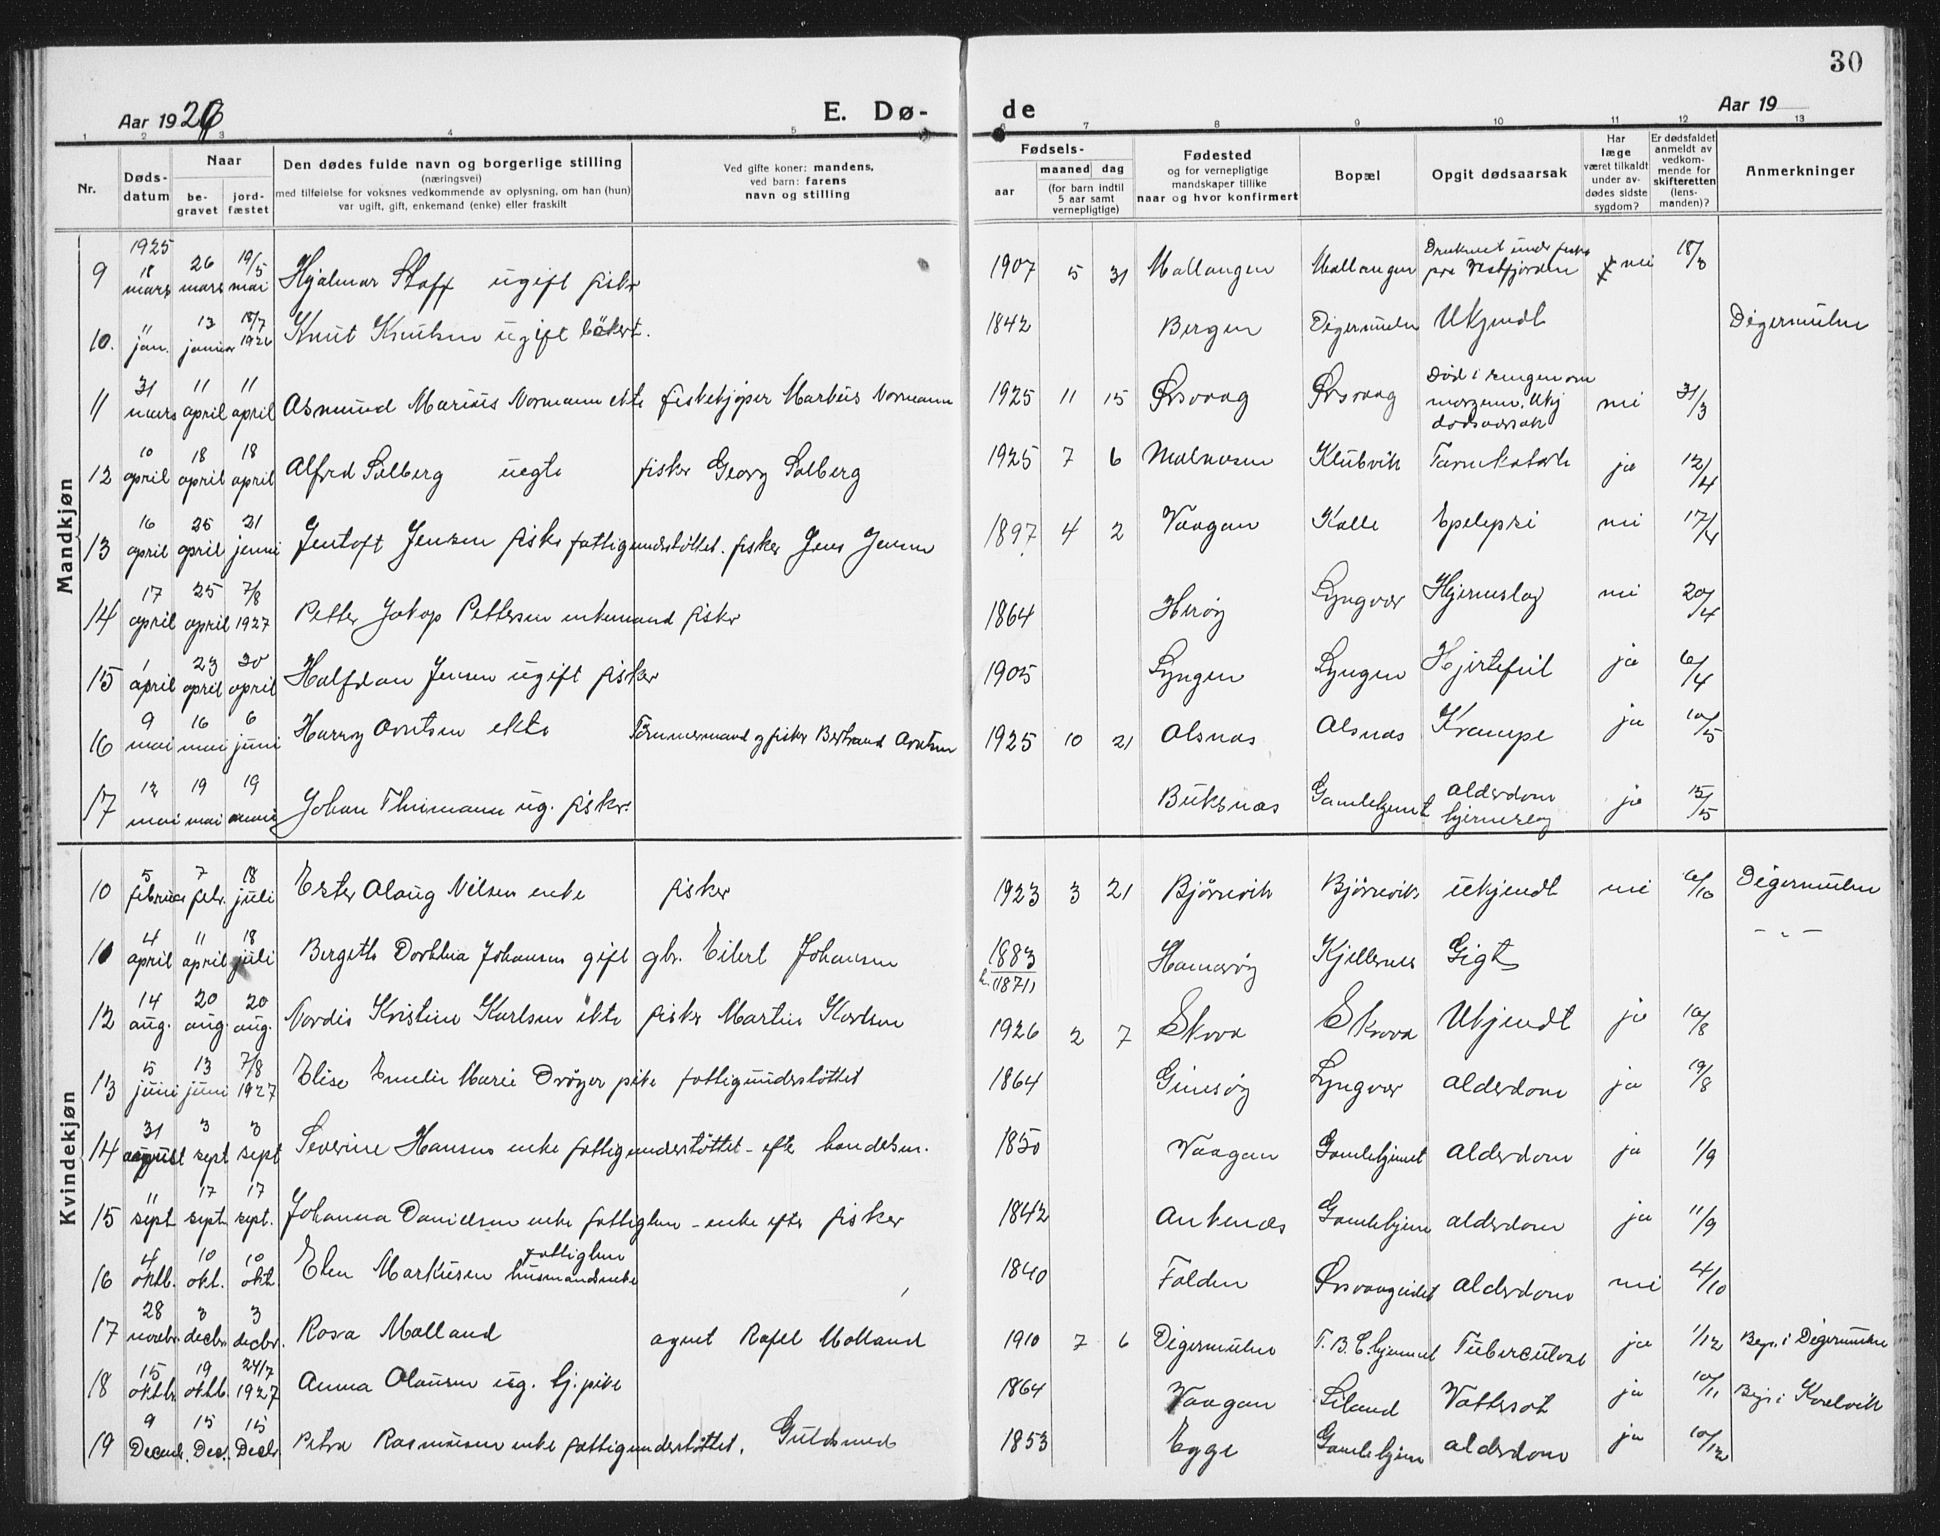 30
Aar 1926 E. Dø- de Aar 19
1 2 3 4 5 6 7 8 9 10 11 12 13
Nr. Døds-datum Naar be-gravet jord-fæstet
Den dødes fulde navn og borgerlige stilling
(næringsvei)
med tilføielse for voksnes vedkommende av oplysning, om han (hun)
var ugift, gift, enkemand (enke) eller fraskilt
Ved gifte koner: mandens,
ved barn: farens
navn og stilling
Fødsels-
aar maaned dag
(for barn indtil
5 aar samt
vernepligtige)
Fødested
og for vernepligtige
mandskaper tillike
naar og hvor konfirmert
Bopæl
Opgit dødsaarsak
Har
læge
været tilkaldt
under av-
dødes sidste
sygdom?
Er dødsfaldet
anmeldt av
vedkom-
mende for
skifteretten
(lens-
manden)?
Anmerkninger
Mandkjøn
9 1925 18 mars 26 mars 19/5 mai Hjalmar Staff ugift fisker 1907 5 31 Mallangen Mallangen Druknet under fiske paa Vestfjorden nei 18/3
10. 11 jan. 13 januar 18/7 1926 Knut Knutsen ugift bøkert. 1842 Bergen Digermulen Ukjendt Digermulen
11 31 mars 11 april 11 april Asmund Marius Normann ekte fiskekjøper Markus Normann 1925 11 15 Ørsvaag Ørsvaag Død i sengen om morgenen. Ukj dødsaarsak nei 31/3
12 10 april 18 april 18 april Alfred Solberg uegte fisker Georg Solberg 1925 7 6 Malnosen Klubvik Tarmkatarh ja 12/4
13 16 april 25 april 21 juni Jentoft Jensen fisker fattigunderstøttet. fisker Jens Jensen 1897 4 2 Vaagan Kalle Epelepsi nei 17/4
14 17 april 25 april 7/8 1927 Petter Jakop Pettersen enkemand fisker 1864 Herøy Lyngvær Hjerneslag nei 20/4
15 1 april 23 april 30 april Halfdan Jensen ugift fisker 1905 Lyngen Lyngen Hjertefeil ja 6/4
16 9 mai 16 mai 6 juni Harry Arntsen ekte Tømmermand og fisker Bertrand Arntsen 1925 10 21 Olsnas Olsnas Krampe ja 10/5
17 12 mai 19 mai 19 mai Johan Thimann ug. fisker. Buksnas Gamlehjemt alderdom hjerneslag ja 15/5
Kvindekjøn
10 5 februar 7 febr. 18 juli Ester Olaug Nilsen enke fisker 1923 3 21 Bjørnevik Bjørnevik ukjendt nei 6/10 Digermulen
11 4 april 11 april 18 juli Bergette Dorthea Johansen gift gbr. Eilert Johansen 1883 (1871) Hamarøy Kjellernes Gigt - " -
12 14 aug. 20 aug. 20 aug. Nordis Kristine Karlsen ekte fisker Martin Karlsen 1926 2 7 Skova Skrova Ukjendt ja 16/8
13 5 juni 13 juni 7/8 1927 Elise Emelie Marie Drøyer pike fattigunderstøttet 1864 Gimsøy Lyngvær alderdom ja 9/8
14 31 august 3 sept 3 sept Severine Hansen enke fattigunderstøttet - efter handelsm. 1850 Vaagan Gamlehjemet alderdom ja 1/9
15 11 sept 17 sept. 17 sept. Johanna Danielsen enke fattiglem - enke efter fisker 1842 Ankenæs Gamlehjem alderdom ja 11/9
16 4 oktb. 10 okt. 10 okt Elen Markusen fattiglem husmandsenke 1840 Folden Ørsvaagvidet alderdom nei 4/10
17 28 novbr. 3 decbr. 3 decbr. Rosa Molland agent Rafel Molland 1910 7 6 Digermulen T.B.C.hjemmet Tuberculose ja 1/12 Begr. i Digermulen
18 15 oktbr. 19 oktb. 24/7 1927 Anna Olausen ug. tj. pike 1864 Vaagan Liland Vattersot ja 10/11 Begr. i Kaelvik
19 9 Decemb. 15 Des. 15 Decbr Petra Rasmussen enke fattigunderstøttet. Guldsmed 1853 Egge Gamlehjem alderdom ja 10/12